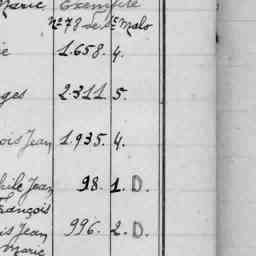 Marie Exemplaire
Nº 78 de St Malo
ie 1.658. 4.
ges 2311 5.
ois Jean 1.935. 4.
hile Jean 98. 1. D.
François
is Jean 996. 2. D.
Marie